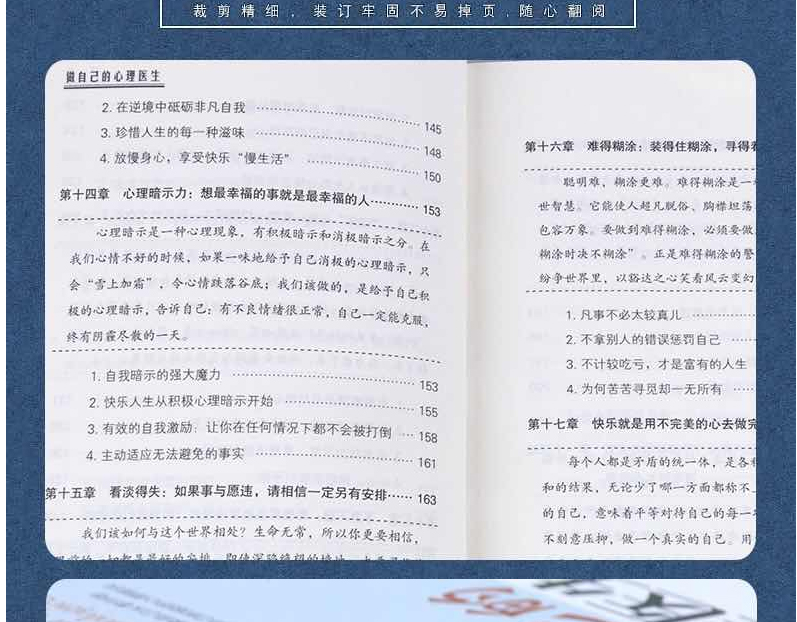 裁剪精细，装订牢固不易掉页，随心翻阅
做自己的心理医生
2. 在逆境中砥砺非凡自我 145
3. 珍惜人生的每一种滋味 148
4. 放慢身心，享受快乐“慢生活” 150
第十四章 心理暗示力：想最幸福的事就是最幸福的人 153
心理暗示是一种心理现象，有积极暗示和消极暗示之分。在
我们心情不好的时候，如果一味地给予自己消极的心理暗示，只
会“雪上加霜”，令心情跌落谷底；我们该做的，是给予自己积
极的心理暗示，告诉自己：有不良情绪很正常，自己一定能克服，
终有阴霾尽散的一天。
1. 自我暗示的强大魔力 153
2. 快乐人生从积极心理暗示开始 155
3. 有效的自我激励：让你在任何情况下都不会被打倒 158
4. 主动适应无法避免的事实 161
第十五章 看淡得失：如果事与愿违，请相信一定另有安排 163
我们该如何与这个世界相处？生命无常，所以你更要相信，
第十六章 难得糊涂：装得住糊涂，寻得
聪明难，糊涂更难。难得糊涂是一
世智慧。它能使人超凡脱俗、胸襟坦荡
包容万象。要做到难得糊涂，必须要做
糊涂时决不糊涂”。正是难得糊涂的警
纷争世界里，以豁达之心笑看风云变幻
1. 凡事不必太较真儿
2. 不拿别人的错误惩罚自己
3. 不计较吃亏，才是富有的人生
4. 为何苦苦寻觅却一无所有
第十七章 快乐就是用不完美的心去做完
每个人都是矛盾的统一体，是各种
和的结果，无论少了哪一方面都称不上
的自己，意味着平等对待自己的每一
不刻意压抑，做一个真实的自己。用